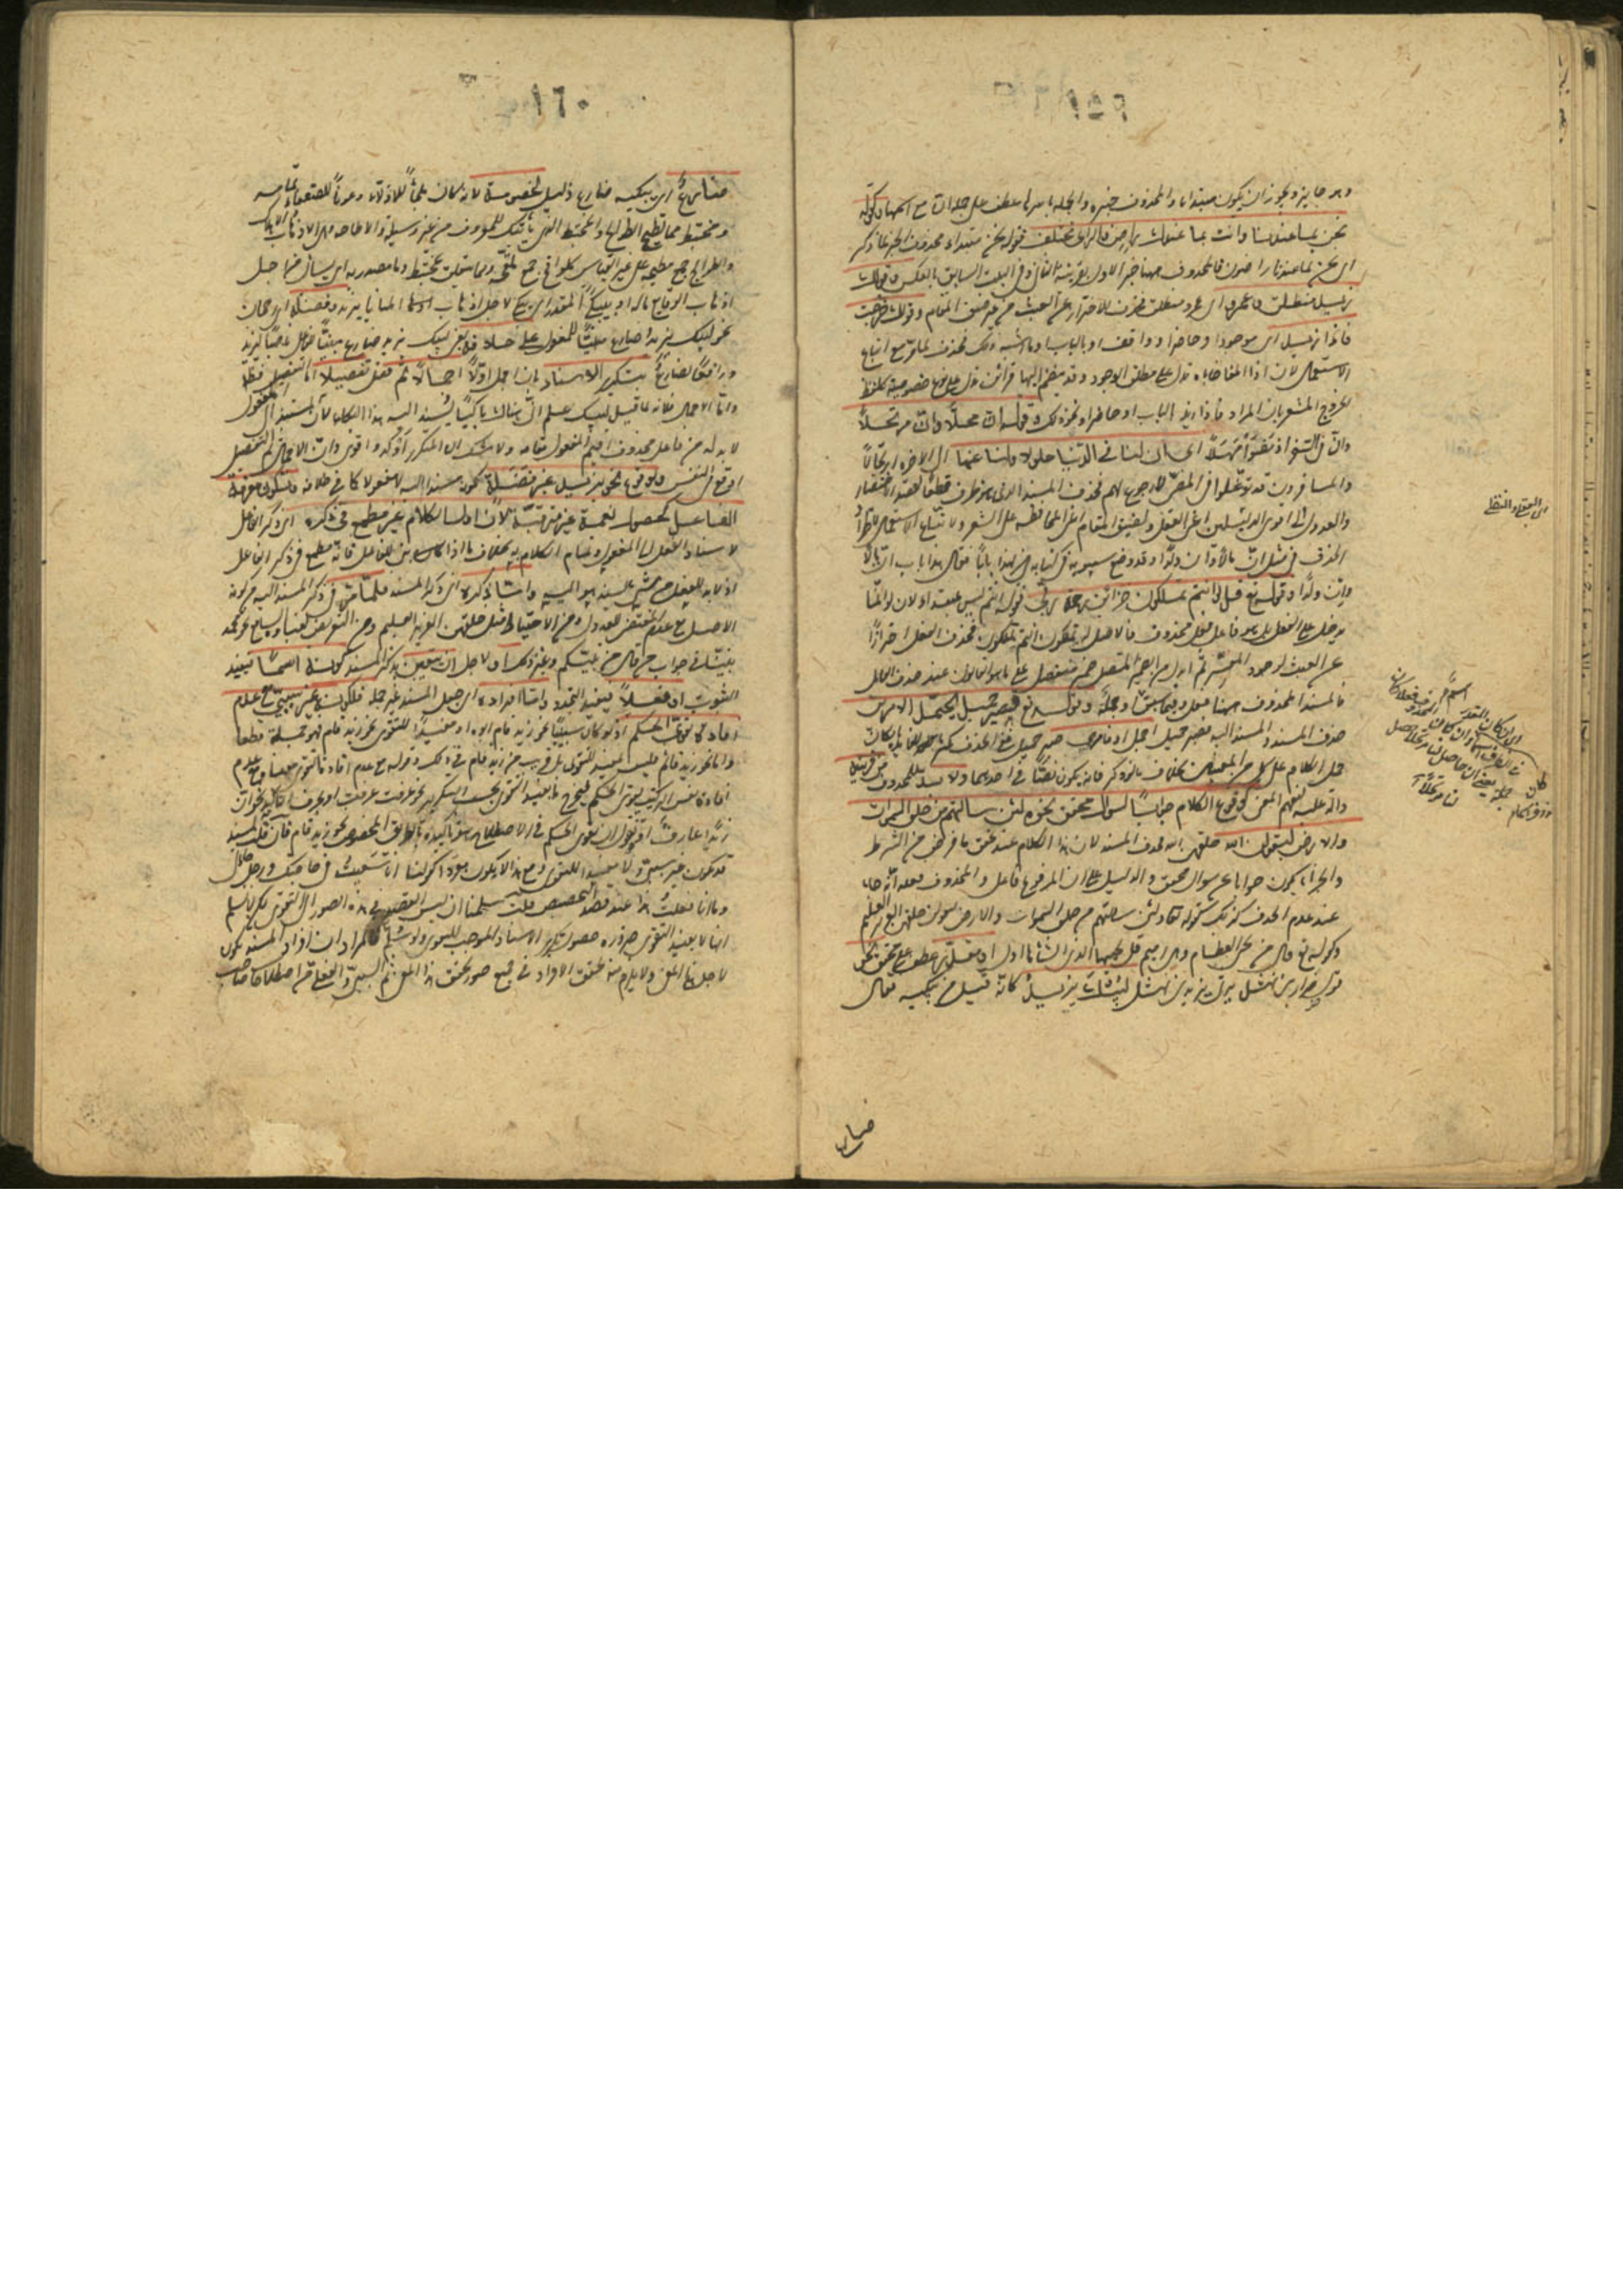 ١٥٩
وهو جايز ويجوز ان يكون مبتداء والمحذوف خبره والجملة باسرها عطف على جملة ان مع اسمها وكقوله
نحن بما عندنا وانت بما عندك راض والراى مختلف فقوله نحن مبتداء محذوف الخبر لما ذكر
اى نحن بما عندنا راضون فالمحذوف ههنا خبر الاول بقرينة الثانى وفى البيت السابق بالعكس وقولك
زيد منطلق وعمرو اى وعمرو منطلق فحذف للاحتراز عن العبث من غير ضيق المقام وقولك خرجت
فاذا زيد اى موجود او حاضر او واقف او بالباب او ما اشبه ذلك فحذف لما مر مع اتباع
الاستعمال لان اذا المفاجاة تدل على مطلق الوجود وقد ينضم اليها قرائن تدل على نوع خصوصية كلفظ
الخروج المشعر بان المراد فاذا زيد بالباب او حاضر او نحو ذلك وقوله ان محلا وان مرتحلا
وان فى السفر اذ مضوا مهلا اى ان لنا فى الدنيا حلولا ولنا عنها الى الاخرة ارتحالا
والمسافرون قد توغلوا فى المضى لا رجوع لهم فحذف المسند الذى هو ظرف قطعا لقصد الاختصار
والعدول الى اقوى الدليلين اعنى العقل ولضيق المقام اعنى المحافظة على الشعر ولاتباع الاستعمال لاطراد
الحذف فى مثل ان مالا وان ولدا وقد وضع سيبويه فى كتابه لهذا بابا فقال هذا باب ان مالا
وان ولدا وقوله تع قل لو انتم تملكون خزائن رحمة ربى فقوله انتم ليس بمبتداء لان لو انما
يدخل على الفعل بل هو فاعل فعل محذوف فالاصل لو تملكون انتم تملكون فحذف الفعل احترازا
عن العبث لوجود المفسر ثم ابدل من الضمير المتصل ضمير منفصل على ما هو القانون عند حذف العامل
فالمسند المحذوف ههنا فعل وفيما سبق اسم او جملة وقوله تع فصبر جميل يحتمل الامرين
حذف المسند والمسند اليه فصبر جميل اجمل او فامرى صبر جميل ففى الحذف تكثير للفائدة بامكان
حمل الكلام على كل من المعنيين بخلاف ما لو ذكر فانه يكون نصا فى احدهما ولا بد للمحذوف من قرينة
دالة عليه ليفهم المعنى كوقوع الكلام جوابا لسؤال محقق نحو ولئن سالتهم من خلق السموات
والارض ليقولن الله اى خلقهن الله فحذف المسند لان هذا الكلام عند تحقق ما فرض من الشرط
والجزاء يكون جوابا عن سؤال محقق والدليل على ان المرفوع فاعل والمحذوف فعله انه جاء
عند عدم الحذف كذلك كقوله تعالى ولئن سالتهم من خلق السموات والارض ليقولن خلقهن العزيز العليم
وكقوله تع قال من يحيى العظام وهى رميم قل يحييها الذى انشاها اول مرة او مقدر عطف على محقق نحو
قول ضرار بن نهشل يرثى يزيد بن نهشل ليبك يزيد كانه قيل من يبكيه فقال
ضارع
اى العقلى والنقلى
١٦٠
ضارع اى يبكيه ضارع ذليل لخصومة لانه كان ملجأ للاذلاء وعونا للضعفاء تمامه
ومختبط مما تطيح الطوائح والمختبط الذى ياتيك للمعروف من غير وسيلة والاطاحة الاذهاب والاهلاك
والطوائح جمع مطيحة على غير القياس كلواقح جمع ملقحة ومما يتعلق بمختبط وما مصدرية اى يسأل من اجل
اذهاب الوقايع ماله او بيبكى المقدر اى يبكى لاجل اذهاب المنايا يزيد وفضله اى رجحان
نحو ليبك يزيد ضارع مبنيا للمفعول على خلافه يعنى ليبك يزيد ضارع مبنيا للفاعل ناصبا ليزيد
ورافعا لضارع بتكرر الاسناد بان اجمل اولا اجمالا ثم فصل تفصيلا اما التفصيل فظاهر
واما الاجمال فلانه لما قيل ليبك علم ان هناك باكيا يسند اليه هذا البكاء لان المسند الى المفعول
لا بد له من فاعل محذوف اقيم المفعول مقامه ولا شك ان المتكرر اوكد واقوى وان الاجمال ثم التفصيل
اوقع فى النفس وبوقوع نحو يزيد غير فضلة لكونه مسندا اليه لا مفعولا كما فى خلافه وبكون معرفة
الفاعل كحصول نعمة غير مترقبة لان اول الكلام غير مطمع فى ذكره اى ذكر الفاعل
لاسناد الفعل الى المفعول وتمام الكلام به بخلاف ما اذا كان مبنيا للفاعل فانه مطمع فى ذكر الفاعل
اذ لا بد للفعل من شىء يسند هو اليه واما ذكره اى ذكر المسند فلما مر فى ذكر المسند اليه من كونه
الاصل مع عدم المقتضى للعدول ومن الاحتياط مثل خلقهن العزيز العليم ومن التعريض بغباوة السامع نحو محمد
نبينا فى جواب من قال من نبيكم وغير ذلك او لاجل ان يتعين بذكر المسند كونه اسما فيفيد
الثبوت او فعلا فيفيد التجدد واما افراده اى جعل المسند غير جملة فلكونه غير سببى مع عدم
افادة تقوى الحكم اذ لو كان سببيا نحو زيد قام ابوه او مفيدا للتقوى نحو زيد قام فهو جملة قطعا
واما نحو زيد قائم فليس بمفيد للتقوى بل قريب من زيد قام فى ذلك وقوله مع عدم افادة التقوى معناه مع عدم
افادة نفس التركيب تقوى الحكم فيخرج ما يفيد التقوى بحسب التكرير نحو عرفت عرفت او بحرف التاكيد نحو ان
زيدا عارف او نقول ان تقوى الحكم فى الاصطلاح هو تاكيده بالطريق المخصوص نحو زيد قام فان قلت المسند
قد يكون غير سببى ولا مفيدا للتقوى ومع هذا لا يكون مفردا كقولنا انا سعيت فى حاجتك ورجل جاءنى
وما انا فعلت هذا عند قصد التخصيص قلت سلمنا ان ليس القصد فى هذه الصور الى التقوى لكن لا نسلم
انها لا يفيد التقوى ضرورة حصول تكرر الاسناد الموجب للتقوى ولو سلم فالمراد ان افراد المسند يكون
لاجل هذا المعنى ولا يلزم منه تحقق الافراد فى جميع صور تحقق هذا المعنى ثم السببى والفعلى من اصطلاحات صاحب